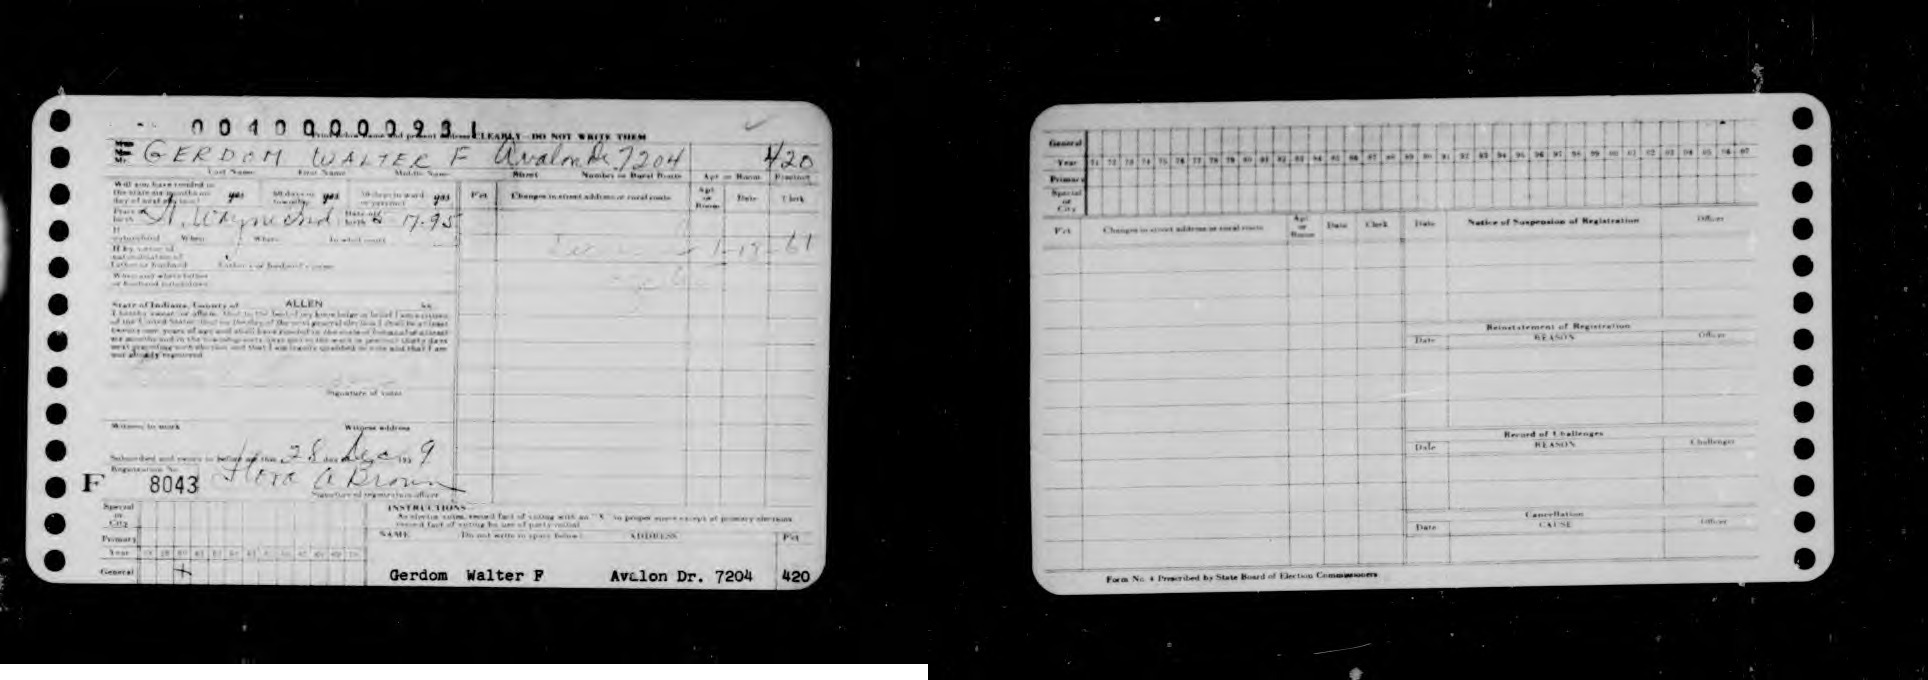 004000000931
Print below name and present address CLEARLY—DO NOT WRITE THEM
Mr. GERDOM WALTER F Avalon Dr 7204 420
Last Name First Name Middle Name Street Number or Rural Route Apt or Room Precinct
Will you have resided in the state six months on day of next election? yes 60 days in township yes 30 days in ward or precinct yes
Pct Changes in street address or rural route Apt or Room Date Clerk
Place of birth Ft. Wayne Ind Date of birth 17-95
If naturalized When Where In what court
Dec 1-19-61
If by virtue of naturalization of father or husband Father's or husband's name
When and where father or husband naturalized
State of Indiana, County of ALLEN ss:
I hereby swear (or affirm) that to the best of my knowledge or belief I am a citizen
of the United States; that on the day of the next general election I shall be at least
twenty-one years of age and shall have resided in the state of Indiana for at least
six months and in the township sixty days and in the ward or precinct thirty days
next preceding such election and that I am legally qualified to vote and that I am
not already registered
Signature of voter
Witness to mark Witness address
Subscribed and sworn to before me this 28 day Dec 195 9
Registration No.
F 8043 Flora A Brown
Signature of registration officer
Special or City
INSTRUCTIONS
As elector votes, record fact of voting with an "X" in proper space except at primary elections
record fact of voting by use of party initial
Primary NAME (Do not write in space below) ADDRESS Pct
Year 58 59 60 61 62 63 64 65 66 67 68 69 70
General + Gerdom Walter F Avalon Dr. 7204 420
General
Year 71 72 73 74 75 76 77 78 79 80 81 82 83 84 85 86 87 88 89 90 91 92 93 94 95 96 97 98 99 00 01 02 03 04 05 06 07
Primary
Special or City
Pct Changes in street address or rural route Apt or Room Date Clerk Date Notice of Suspension of Registration Officer
Reinstatement of Registration
Date REASON Officer
Record of Challenges
Date REASON Challenger
Cancellation
Date CAUSE Officer
Form No. 4 Prescribed by State Board of Election Commissioners